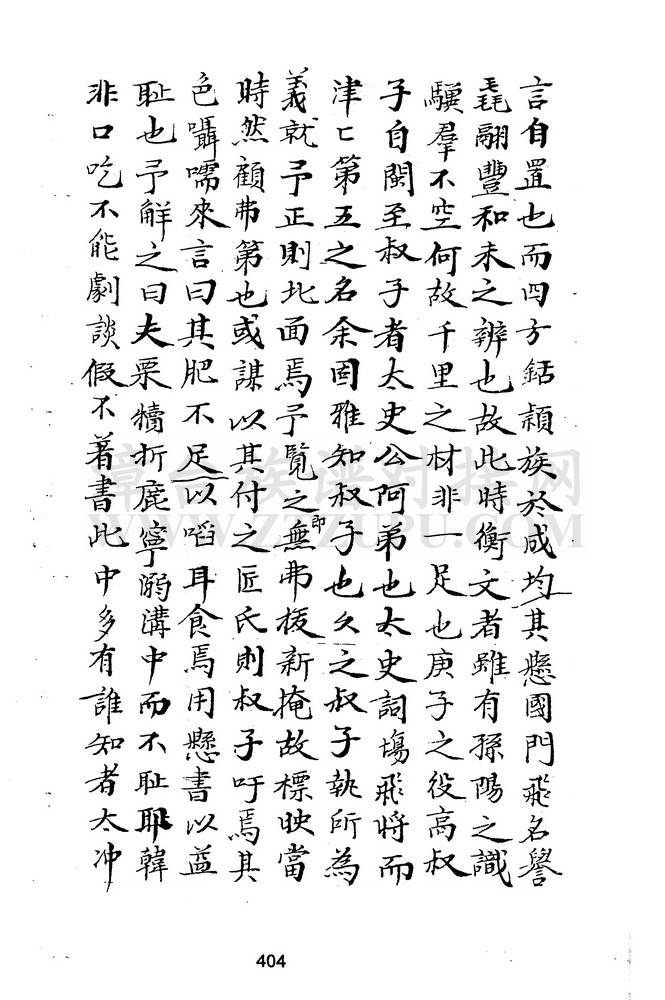 言自置也而四方銛頴族於咸均其懸國門飛名譽
毳翮豐和未之辨也故此時衡文者雖有孫陽之識
驥羣不空何故千里之材非一足也庚子之役高叔
子自閩至叔子者太史公阿弟也太史詞塲飛將而
津〻第五之名余固雅知叔子也久之叔子執所為
義就予正則北面焉予覽之無弗拔新掩故標映當
即
時然顧弗第也或謀以其付之匠氏則叔子吁焉其
色囁嚅來言曰其肥不足以啗耳食焉用懸書以益
耻也予解之曰夫栗犢折鹿寧溺溝中而不耻耶韓
非口吃不能劇談假不著書此中多有誰知者太冲
章台族谱对接网
WWW.ZTZUPU.COM
404